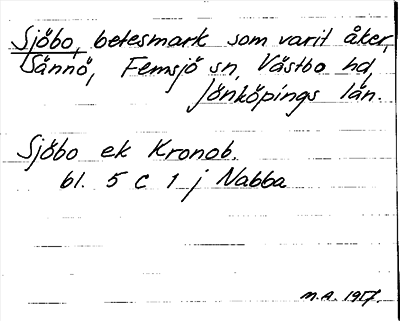 Sjöbo, betesmark som varit åker,
Sännö, Femsjö sn, Västbo hd,
Jönköpings län.
Sjöbo ek Kronob.
bl. 5 C 1 j Nabba
M.A. 1957.